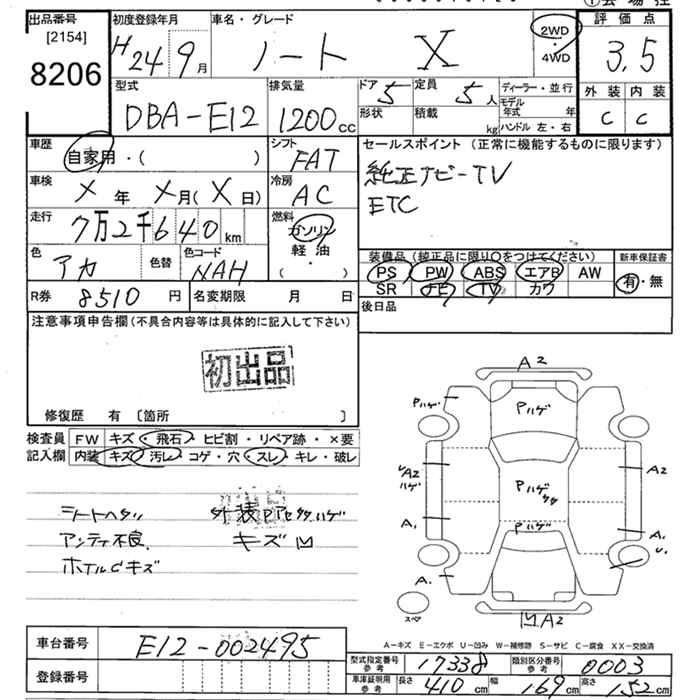 会場控
出品番号 初度登録年月 車名・グレード 2WD・4WD 評価点
[2154]
8206
H 24 9月 ノート X 3.5
型式 排気量 ドア 定員 ディーラー・並行 外装 内装
DBA-E12 1200cc 5 5人 モデル年式 年 C C
形状 積載 kg ハンドル 左・右
車歴 シフト セールスポイント (正常に機能するものに限ります)
自家用・( ) FAT 純正ナビーTV
車検 冷房 ETC
X年 X月(X日) AC
走行 燃料
7万2千640km ガソリン
色 色替 色コード 軽油
アカ NAH ・( )
装備品 (純正品に限り○をつけてください) 新車保証書
PS PW ABS エアB AW 有・無
SR TV カワ
R券 8510円 名変期限 月 日 後日品
注意事項申告欄(不具合内容等は具体的に記入して下さい)
初出品
修復歴 有 〔箇所 〕
検査員 FW キズ・飛石・ヒビ割・リペア跡・×要
記入欄 内装 キズ・汚レ・コゲ・穴・スレ・キレ・破レ
シートヘタリ
アンティ不良
キズ凹
A2
Pハゲ
Pハゲ
A2
ハゲ
Pハゲ
A2
Pハゲ
A1
A1
U1
A1
スペア
A2
A-キズ E-エクボ U-凹み W-補修跡 S-サビ C-腐食 XX-交換済
車台番号 E12-002495
登録番号
型式指定番号 参考 17338 類別区分番号 参考 0003
車庫証明用 参考 長さ 410cm 幅 169cm 高さ 152cm